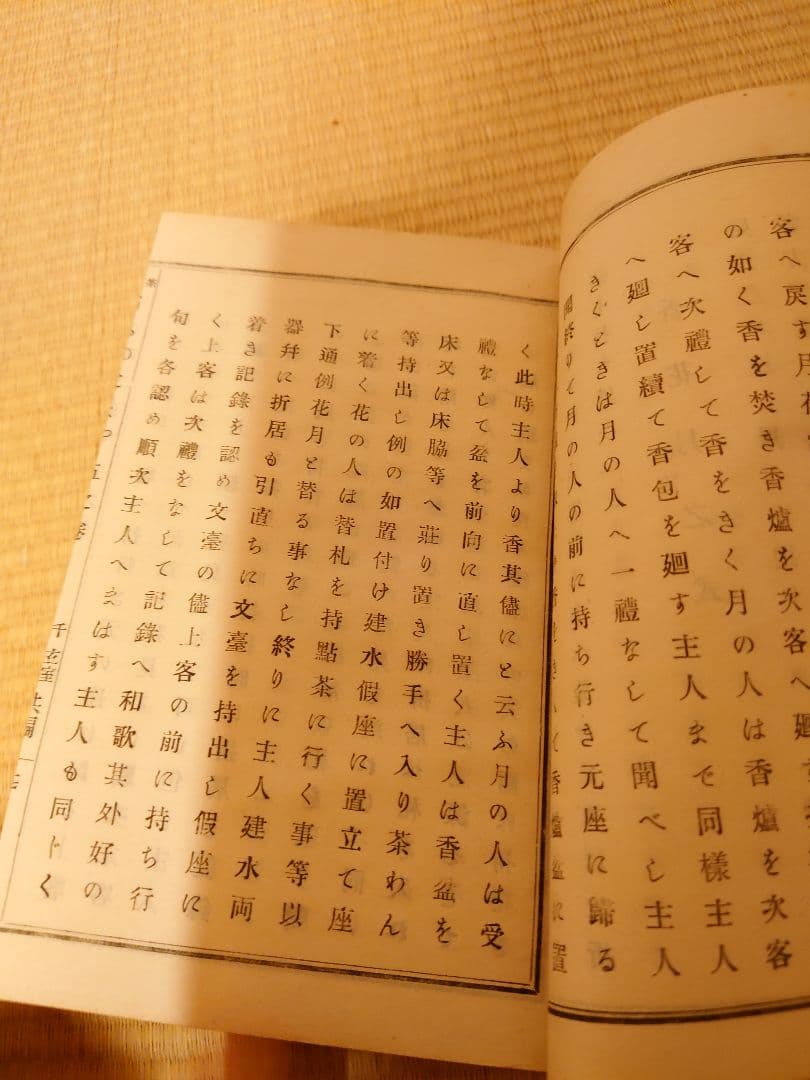 客へ戻す月
の如く香を焚き香爐を次客へ廻す
客へ次禮して香をきく月の人は香爐を次客
へ廻し置續て香包を廻す主人まで同樣主人
きくときは月の人へ一禮なして聞べし主人
終りて月の人の前に持ち行き元座に歸る
く此時主人より香其儘にと云ふ月の人は受
禮なして盆を前向に直し置く主人は香盆を
床又は床脇等へ莊り置き勝手へ入り茶わん
等持出し例の如置付け建水假座に置立て座
に着く花の人は替札を持點茶に行く事等以
下通例花月と替る事なし終りに主人建水両
器幷に折居も引直ちに文臺を持出し假座に
着き記錄を認め文臺の儘上客の前に持ち行
く上客は次禮をなして記錄へ和歌其外好の
句を各認め順次主人へまはす主人も同じく